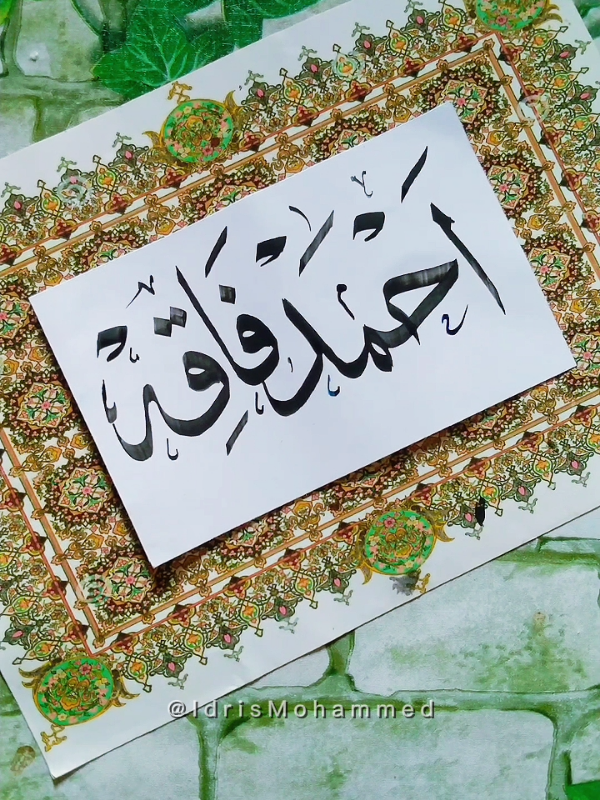 اَحْمَدْ فَاقِهْ
@IdrisMohammed